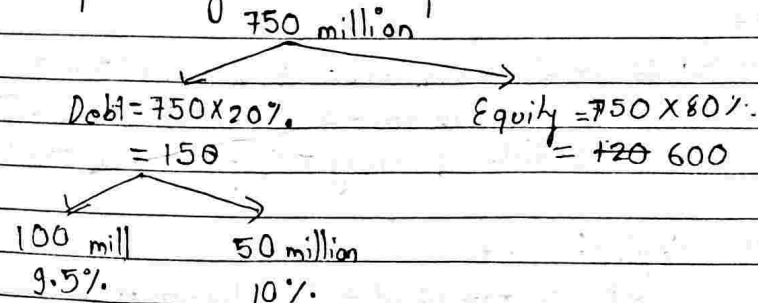 750 million
Debt = 750 × 20%. Equity = 750 × 80%.
= 150 = 120 600
100 mill 50 million
9.5%. 10%.